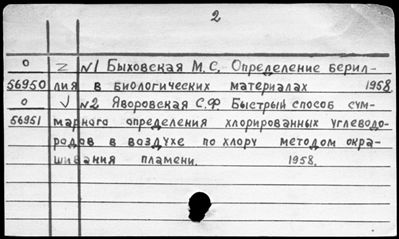 2
0 N1 Быховская М.С. Определение берил-
56950 лия в биологических материалах 1958.
0 V N2 Яворовская С.Ф Быстрый способ сум-
56951 марного определения хлорированных углеводо-
родов в воздухе по хлору методом окра-
шивания пламени. 1958.